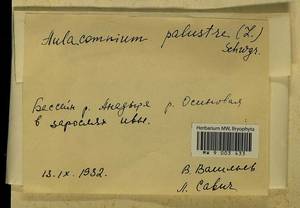 Aulacomnium palustre (L.)
Schwgr.
Бассейн р. Анадыря р. Осиновая
в зарослях ивы.
Herbarium MW, Bryophyta
MW 9 003 433
13.IX.1932.
В. Васильев
Л. Савич